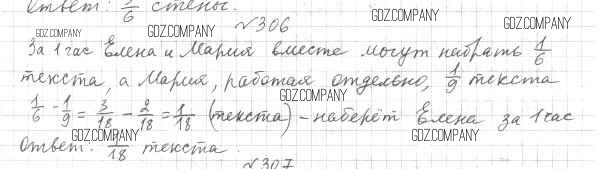 Ответ: 1/6 стены.
GDZ.COMPANY GDZ.COMPANY GDZ.COMPANY GDZ.COMPANY
№306
За 1 час Елена и Мария вместе могут набрать 1/6
текста, а Мария, работая отдельно, 1/9 текста
GDZ.COMPANY
1/6 - 1/9 = 3/18 - 2/18 = 1/18 (текста) - наберёт Елена за 1 час
GDZ.COMPANY GDZ.COMPANY
Ответ: 1/18 текста.
№307